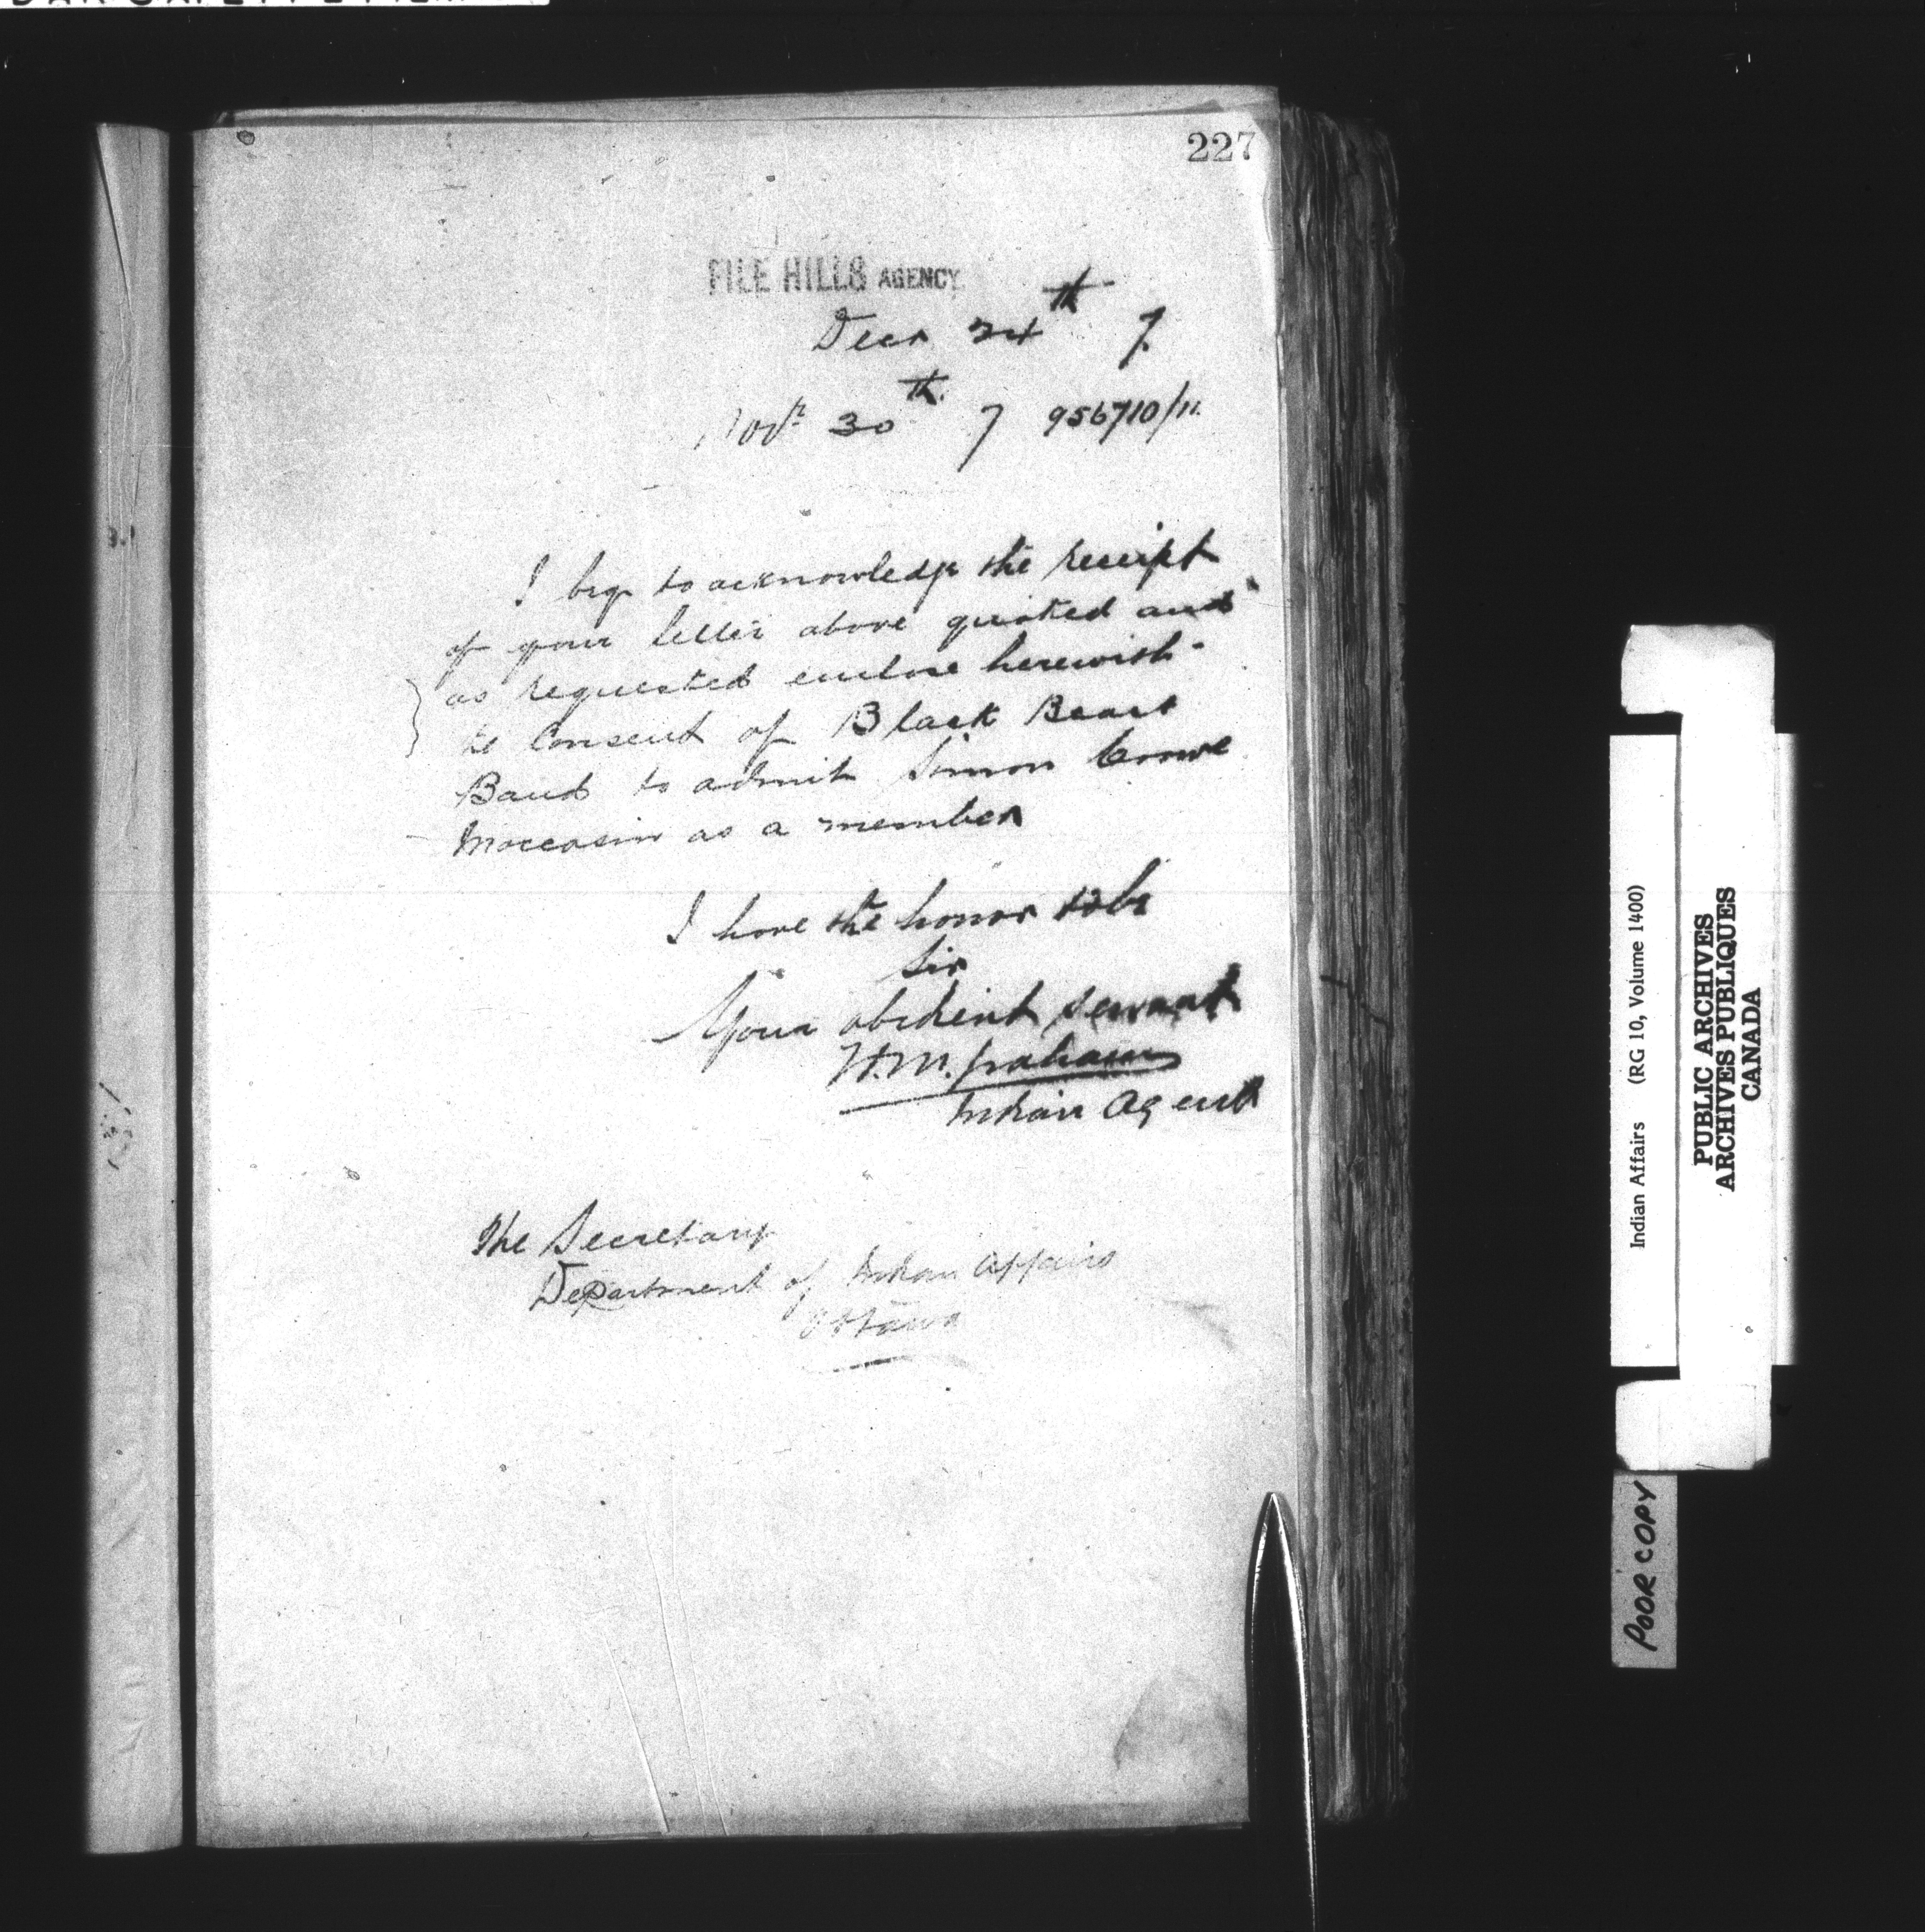 227
FILE HILLS AGENCY
Decr 24th 7
Novr 30th 7 956710/11
I beg to acknowledge the receipt
of your letter above quoted and
as requested enclose herewith
Consent of Black Bears
Band to admit Simon Crowe
Moccasin as a member
I have the honor to be
Sir
Your obedient servant
H.M. Graham
Indian Agent
The Secretary
Department of Indian Affairs
Ottawa
Indian Affairs (RG 10, Volume 1400)
PUBLIC ARCHIVES
ARCHIVES PUBLIQUES
CANADA
POOR COPY